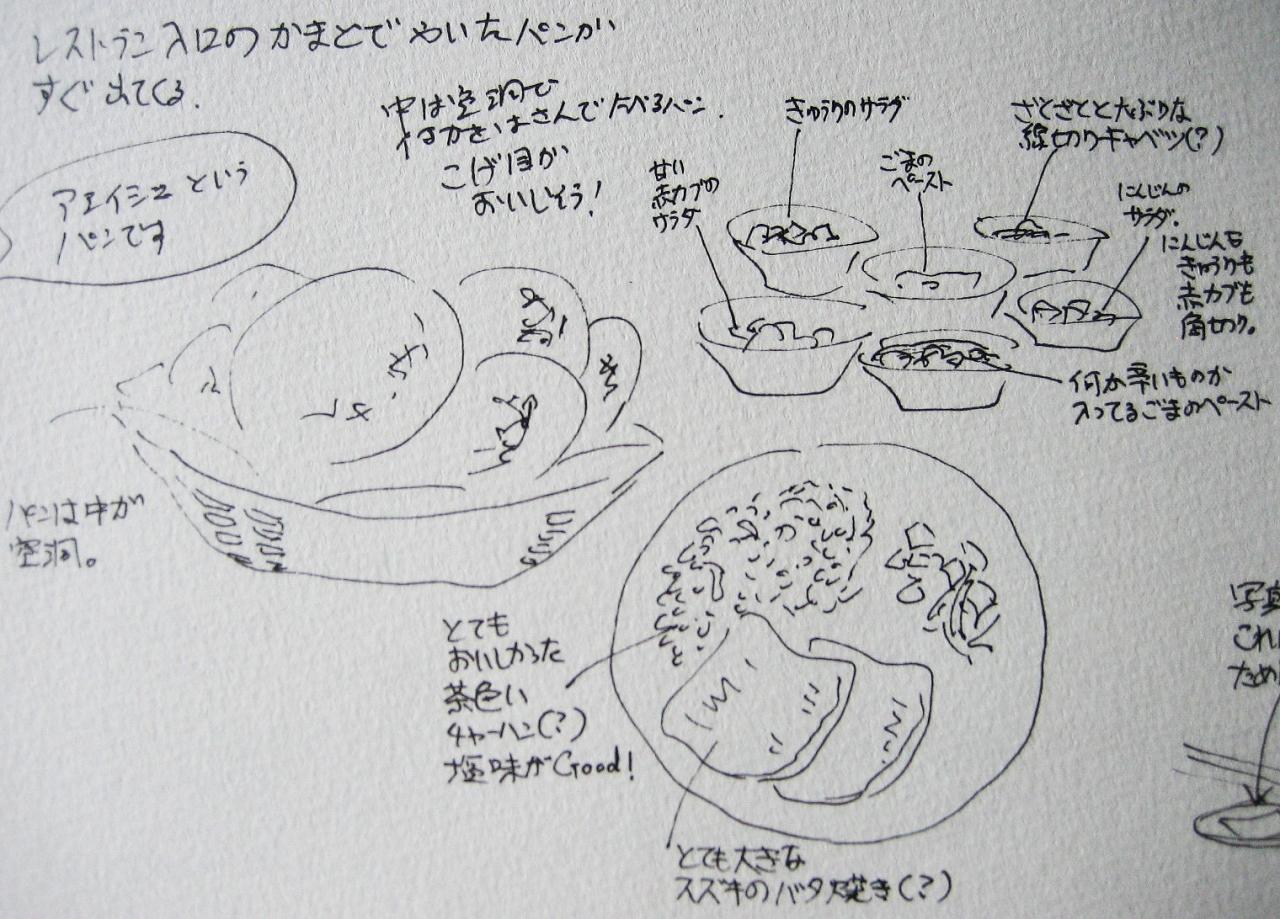 レストラン入口のかまどでやいたパンが
すぐ出てくる.
中は空洞で
なかをはさんでたべるパン.
こげ目が
おいしそう!
アエイシュという
パンです
パンは中が
空洞。
きゅうりのサラダ
甘い
赤カブの
サラダ
ごまの
ペースト
ざくざくとたっぷりな
線切りキャベツ(?)
にんじんの
サラダ.
にんじんも
きゅうりも
赤カブも
角切り。
何か辛いものが
入ってるごまのペースト
とても
おいしかった
茶色い
チャーハン(?)
塩味がGood!
とても大きな
スズキのバタ焼き(?)
写真
これ
ため